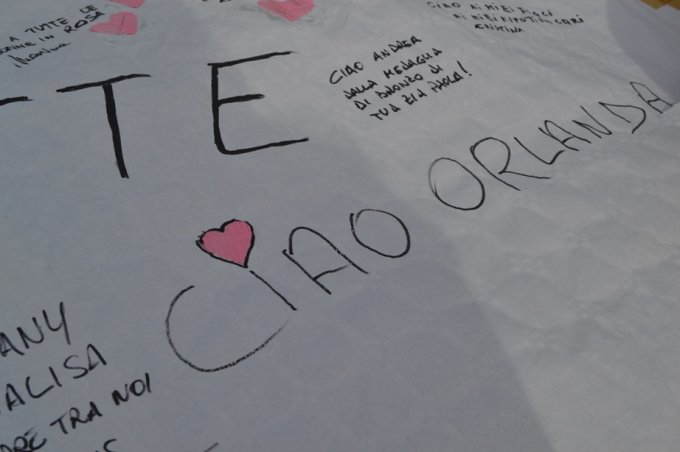 A TUTTE LE
IN ROSA
CIAO ANDREA
DALLA MEDAGLIA
DI BRONZO DI
TUA ZIA PAOLA!
TTE
CIAO ORLANDA
ANY
ALISA
RE TRA NOI